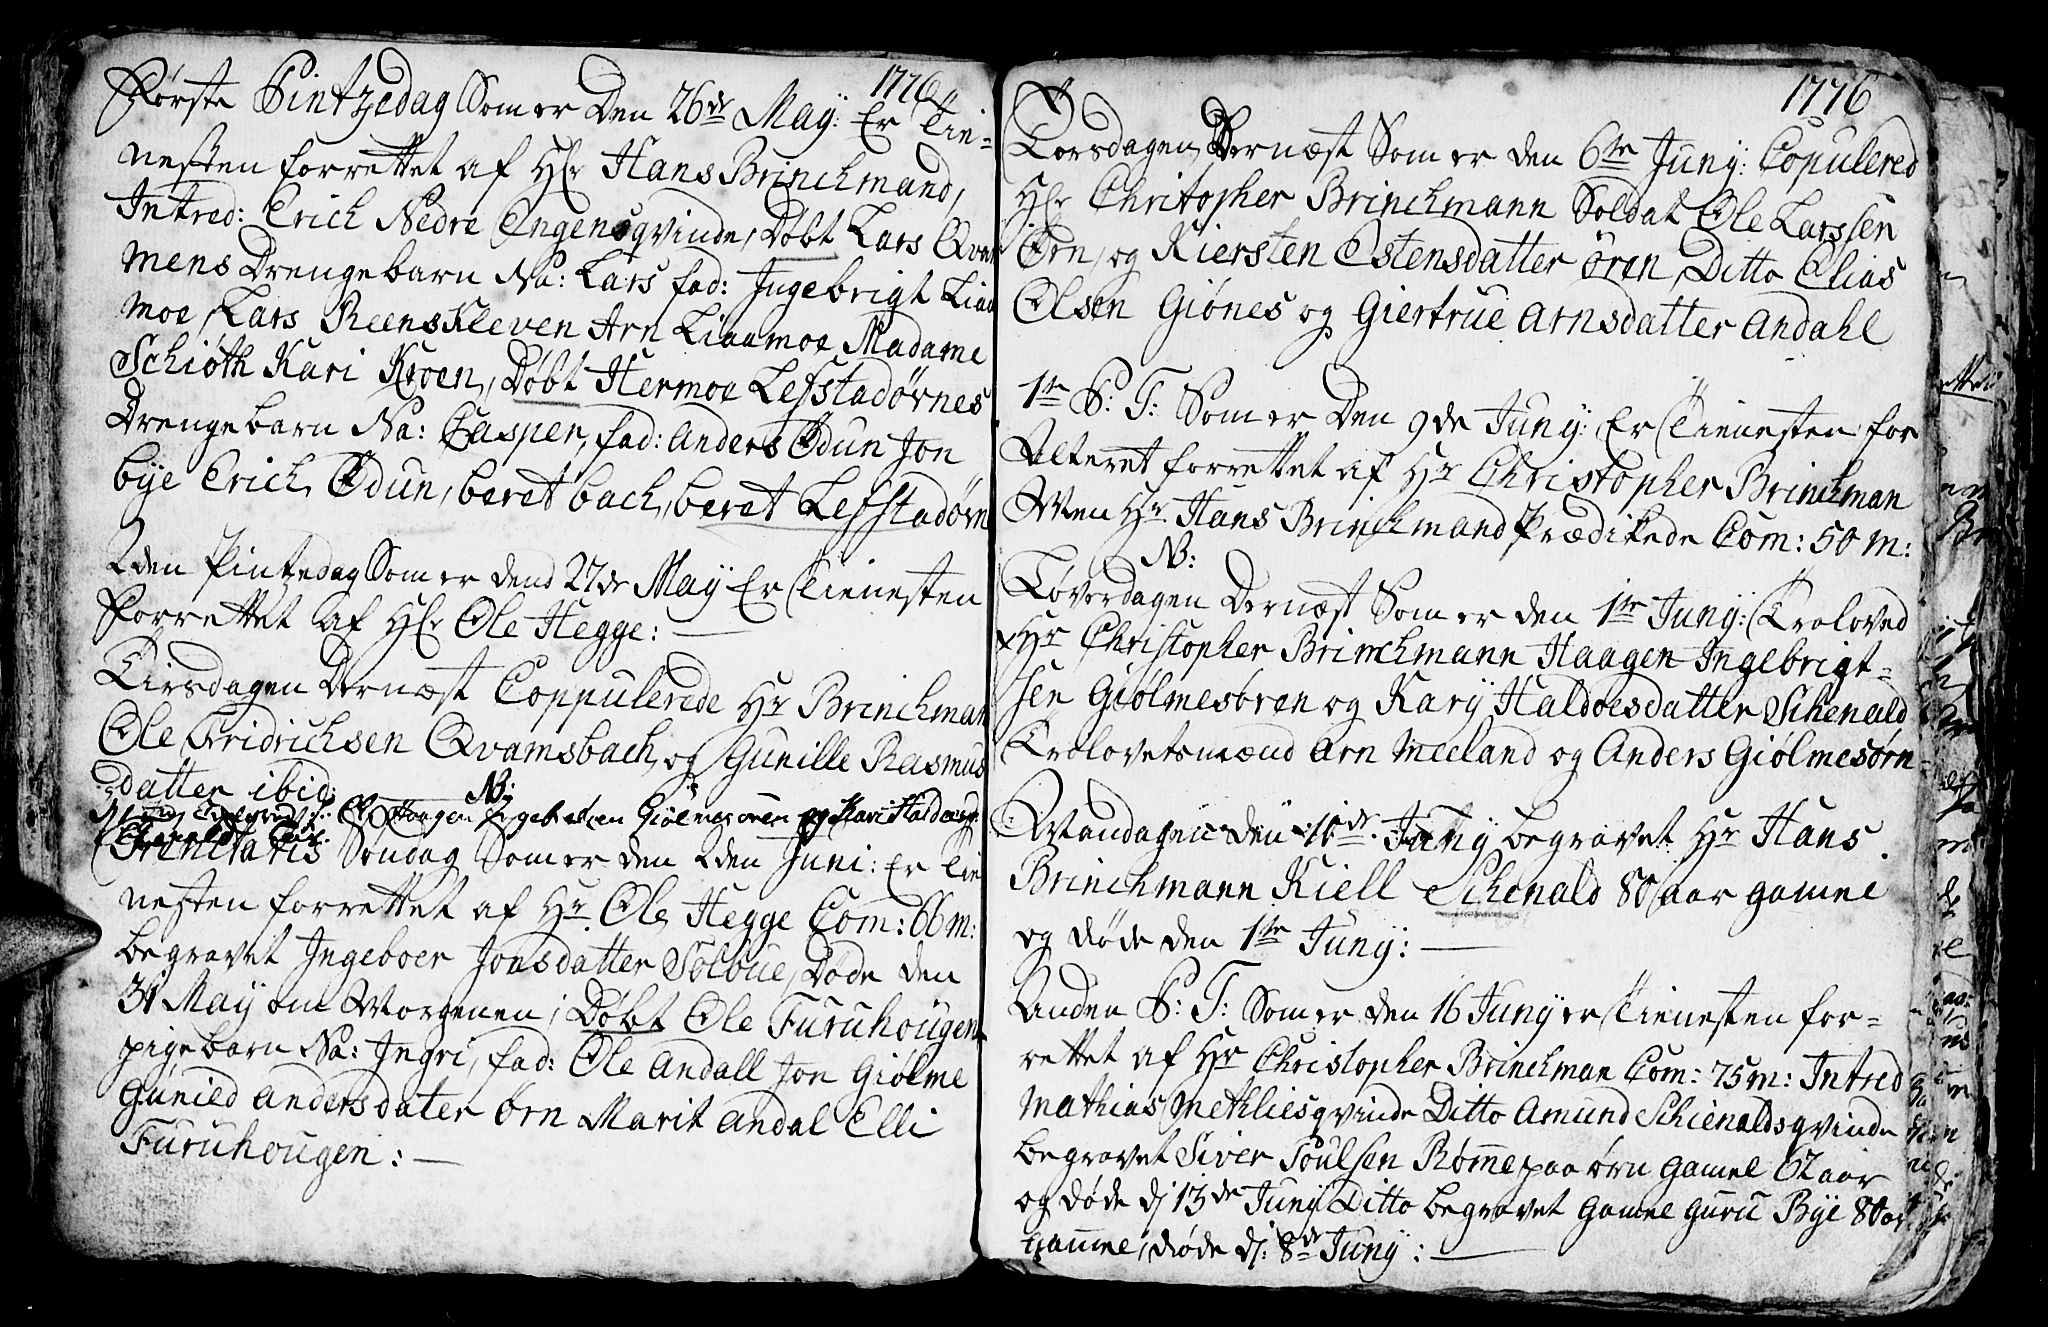 1776
Første Pintzedag Som er Den 26de May: Er Tie-
nesten forrettet af Hr Hans Brinchmand,
Intred: Erich Nedre Engens qvinde, Døbt Lars Qvam
mens Drengebarn Na: Lars fad: Ingebrigt Liaa
moe, Lars Reenskleven Arn Liaamoe Madame
Schiøth Kari Kroen, Døbt Hermoe Lefstadørnes
Drengebarn Na: Casper, fad: Anders Ødun Jon
bye Erich Ødun, beret bach, beret Lefstadørn
2den Pintzedag Som er dend 27de May Er Tienesten
Forrettet af Hr Ole Hegge: —
Tirsdagen Dernæst Coppulerede Hr Brinchman
Ole Fridrichsen Qvamsbach, og Gunille Rasmus
datter ibid:
NB:
Haagen Ingebretsen Giølmesøren og Kari Haldoesd:
Trinitatis Søndag Som er den 2den Juni: Er Tie
nesten forrettet af Hr Ole Hegge Com: 66 m:
begravet Ingeboer Jonsdatter Solbue, Døde den
31 May om Morgenen; Døbt Ole Furuhougens
pigebarn Na: Ingri, fad: Ole Andall Jon Giølme
Gunild Andersdater Ørn Marit Andal Elli
Furuhougen: —
1776
Torsdagen Dernæst Som er den 6te Juny: Copulered
Hr Chritopher Brinchmann Soldat Ole Larssen
Ørn, og Kiersten Estensdatter Øren, Ditto Elias
Olsen Giønes og Giertrue Arnsdatter Andahl
1te S: T: Som er Den 9de Juny: Er Tienesten for
Alteret forrettet af Hr Christopher Brinchman
Men Hr Hans Brinchmand Prædikede Com: 50 m:
NB:
Løverdagen Dernæst Som er den 1te Juny: Troloved
Hr Christopher Brinchmann Haagen Ingebrigt-
sen Giølmesøren og Kary Haldoesdatter Schenald
Trolovetsmænd Arn Meeland og Anders Giølmesørn
Mandagen den 10de Juny begravet Hr Hans
Brinchmann Kiell Schenald 80 aar gamel
og døde den 1te Juny: —
Anden S: T: Som er den 16 Juny er Tienesten for-
rettet af Hr Christopher Brinchman Com: 75 m: Intred
Mathias Methlies qvinde Ditto Amund Schienalds qvinde
begravet Siver Poulsen Rømme paa ørn gamel 62 aar
og døde dj 13de Juny Ditto begravet gamel guru Bye 80 ar
gamel, døde dj: 8de Juny: —